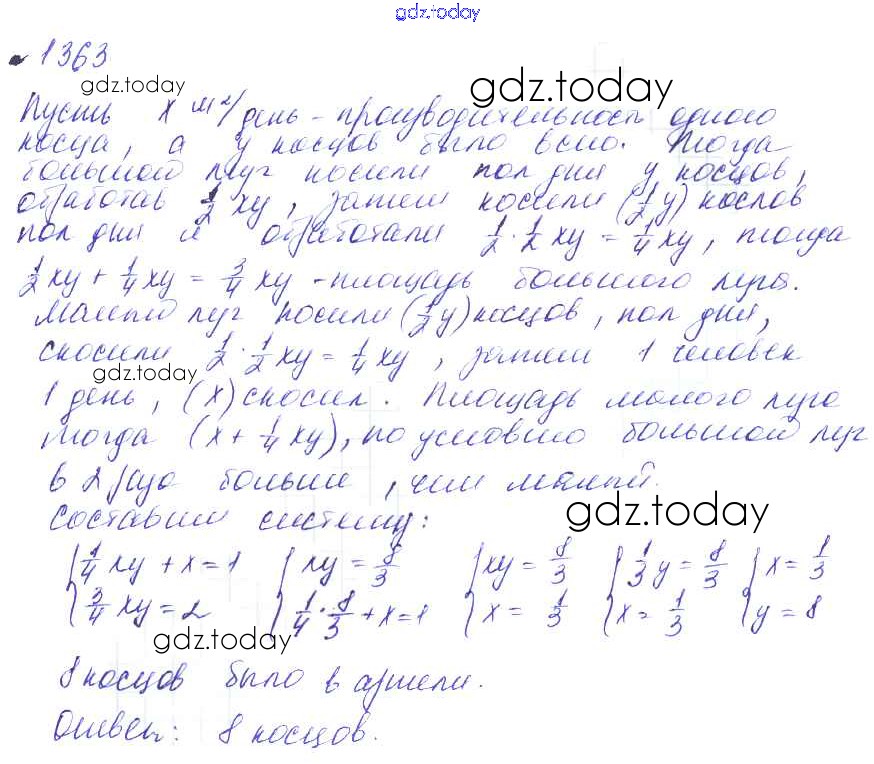 gdz.today
1363
gdz.today
gdz.today
Пусть x м²/день - производительность одного
косца, а y косцов было всго. Тогда
большой луг косили пол дня y косцов,
обработав 1/2 xy, затем косили (1/2 y) косцов
пол дня и обработали 1/2 · 1/2 xy = 1/4 xy, тогда
1/2 xy + 1/4 xy = 3/4 xy - площадь большого луга.
Малый луг косили (1/2 y) косцов, пол дня,
скосили 1/2 · 1/2 xy = 1/4 xy, затем 1 человек
gdz.today
1 день, (x) скосил. Площадь малого луга
тогда (x + 1/4 xy), по условию большой луг
в 2 раза больше, чем малый.
Составим систему:
gdz.today
{ 1/4 xy + x = 1 { xy = 8/3 { xy = 8/3 { 1/3 y = 8/3 { x = 1/3
{ 3/4 xy = 2 { 1/4 · 8/3 + x = 1 { x = 1/3 { x = 1/3 { y = 8
gdz.today
8 косцов было в артели.
Ответ: 8 косцов.